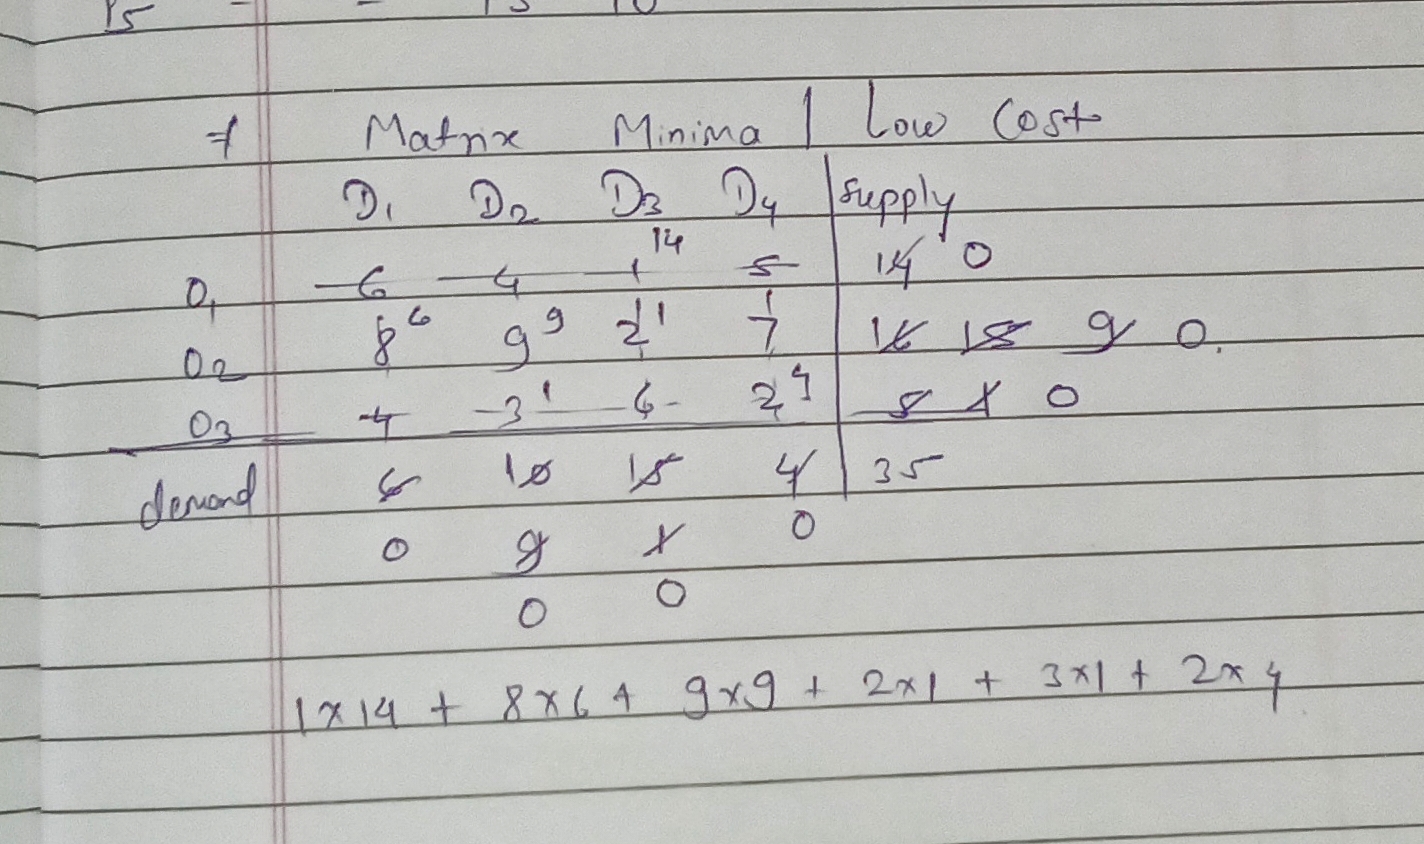 15 - - 15 10
* Matrix Minima | Low Cost
D1 D2 D3 D4 supply
O1 6 4 1 14 5 14 0
O2 8 6 9 9 2 1 7 16 15 9 0.
O3 4 3 1 6 2 4 5 1 0
demand 6 10 15 4 35
0 9 1 0
0 0
1x14 + 8x6 + 9x9 + 2x1 + 3x1 + 2x4